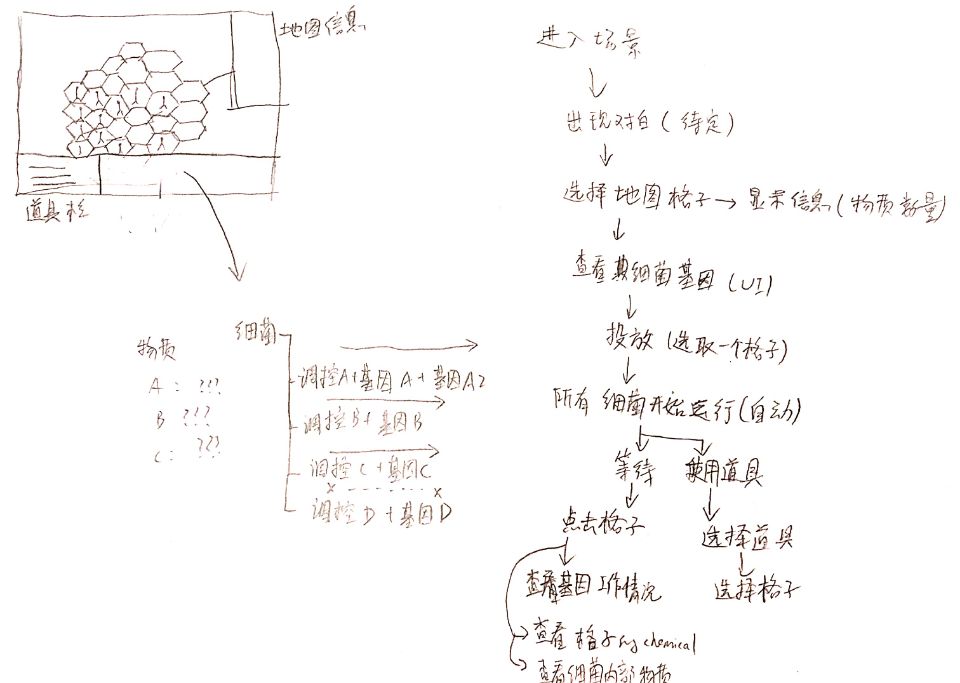 地图信息
道具栏
物质
A: ???
B ???
C: ???
细菌
调控A+基因A+基因A2
调控B+基因B
调控C+基因C
x - - - - - - x
调控D+基因D
进入场景
出现对白(待定)
选择地图格子→显示信息(物质数量)
查看其细菌基因(UI)
投放(选取一个格子)
所有细菌开始运行(自动)
等待
使用道具
点击格子
选择道具
查看基因工作情况
选择格子
查看格子 chemical
查看细菌内部物质